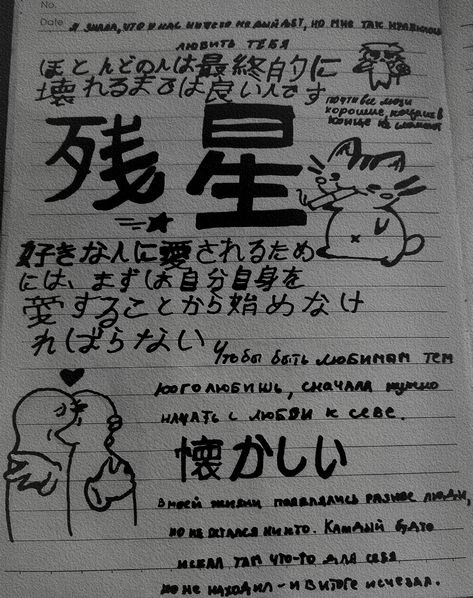 No.
Date
Я ЗНАЛА, ЧТО У НАС НИЧЕГО НЕ ВЫЙДЕТ, НО МНЕ ТАК НРАВИЛОСЬ
ЛЮБИТЬ ТЕБЯ
ほとんどの人は最終的に
壊れるまでは良い人です
ПОЧТИ ВСЕ ЛЮДИ
ХОРОШИЕ, ПОКУДА В
КОНЦЕ НЕ СЛОМАЮТ
残星
好きな人に愛されるため
には、まずは自分自身を
愛することから始めなけ
ればならない
Чтобы быть ЛЮБИМОЙ ТЕМ
КОГО ЛЮБИШЬ, СНАЧАЛА НУЖНО
НАЧАТЬ С ЛЮБВИ К СЕБЕ.
懐かしい
В МОЕЙ ЖИЗНИ ПОЯВЛЯЛИСЬ РАЗНЫЕ ЛЮДИ,
НО НЕ ОСТАЛСЯ НИКТО. КАЖДЫЙ БУДТО
ИСКАЛ ТАМ ЧТО-ТО ДЛЯ СЕБЯ
НО НЕ НАХОДИЛ - И В ИТОГЕ ИСЧЕЗАЛ.